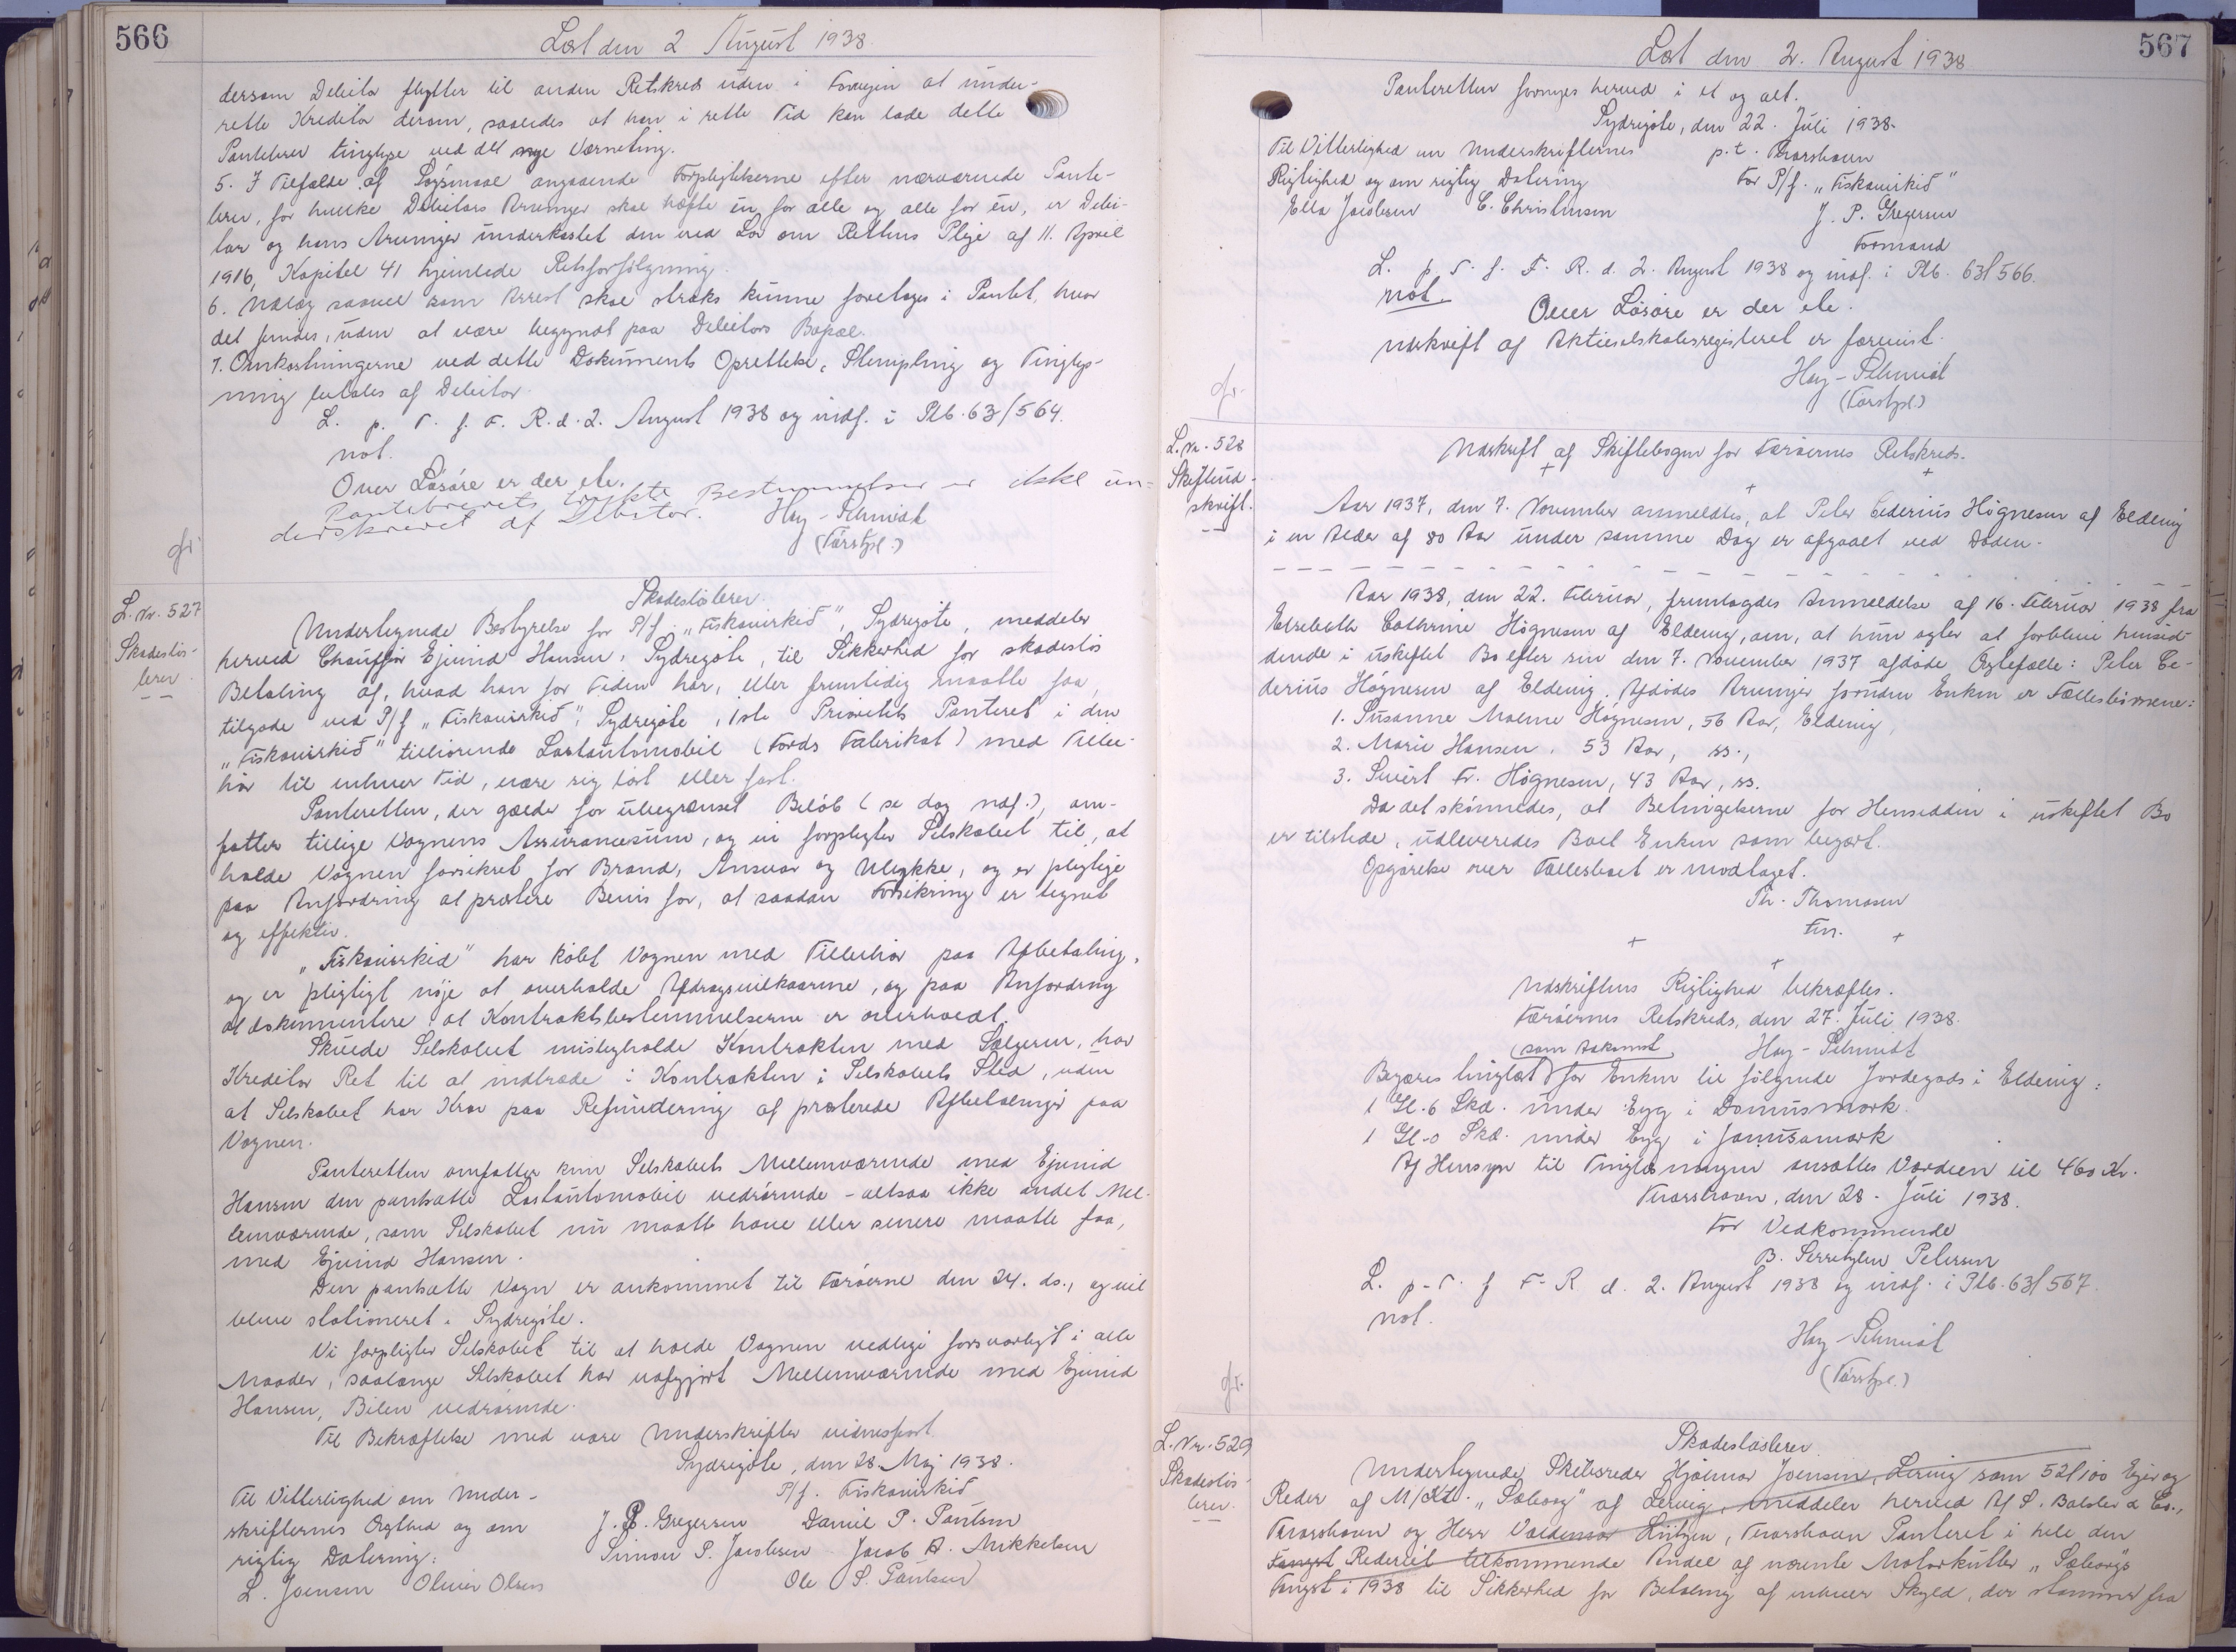 566
Læst den 2 August 1938.
dersom Debitor flytter til anden Retskreds uden i Forvejen at under-
rette Kreditor derom, saaledes at han i rette Tid kan lade dette
Pantebrev tinglyse ved det nye Værneting.
5. I Tilfælde af Søgsmaal angaaende Forpligtelserne efter nærværende Pante-
brev, for hvilke Debitors Arvinger skal hæfte en for alle og alle for en, er Debi-
tor og hans Arvinger underkastet den ved Lov om Rettens Pleje af 11. April
1916, Kapitel 41 hjemlede Retsforfølgning.
6. Udlæg saavel som Arrest skal straks kunne foretages i Pantet, hvor
det findes, uden at være begyndt paa Debitors Bopæl.
7. Omkostningerne ved dette Dokuments Oprettelse, Stempling og Tinglys-
ning betales af Debitor.
L. p. T. f. F. R. d. 2. August 1938 og indf. i Ptb. 63/564.
not.
Over Løsøre er der ete.
Pantebrevets trykte Bestemmelser er ikke un-
derskrevet af Debitor.
Hay-Schmidt
(Førstpl.)
gr.
L. Nr. 527
Skadesløs-
brev.
Skadesløsbrev.
Undertegnede Bestyrelse for P/f. "Fiskavirkið", Sydregøte, meddeler
herved Chauffør Ejvind Hansen, Sydregøte, til Sikkerhed for skadesløs
Betaling af, hvad han for Tiden har, eller fremtidig maatte faa,
tilgode ved P/f "Fiskavirkið", Sydregøte, 1ste Prioritets Panteret i den
"Fiskavirkið" tilhørende Lastautomobil (Fords Fabrikat) med Tilbe-
hør til enhver Tid, være sig løst eller fast.
Panteretten, der gælder for ubegrænset Beløb (se dog ndf.), om-
fatter tillige Vognens Assurancesum, og vi forpligter Selskabet til, at
holde Vognen forsikret for Brand, Ansvar og Ulykke, og er pligtige
paa Anfordring at præstere Bevis for, at saadan Forsikring er tegnet
og effektiv.
"Fiskavirkið" har købt Vognen med Tilbehør paa Afbetaling,
og er pligtigt nøje at overholde Afdragsvilkaarene, og paa Anfordring
at dokumentere at Kontraktsbestemmelserne er overholdt.
Skulde Selskabet misligholde Kontrakten med Sælgeren, har
Kreditor Ret til at indtræde i Kontrakten i Selskabets Sted, uden
at Selskabet har Krav paa Refundering af præsterede Afbetalinger paa
Vognen.
Panteretten omfatter kun Selskabets Mellemværende med Ejvind
Hansen den pantsatte Lastautomobil vedrørende - altsaa ikke andet Mel-
lemværende, som Selskabet nu maatte have eller senere maatte faa,
med Ejvind Hansen.
Den pantsatte Vogn er ankommet til Færøerne den 24. ds., og vil
blive stationeret i Sydregøte.
Vi forpligter Selskabet til at holde Vognen vedlige forsvarligt i alle
Maader, saalænge Selskabet har uafgjort Mellemværende med Ejvind
Hansen, Bilen vedrørende.
Til Bekræftelse med vore Underskrifter vidnesfast.
Sydregøte, den 28. Maj 1938.
P/f. Fiskavirkið
Til Vitterlighed om Under-
skrifternes Ægthed og om
rigtig Datering:
J. P. Gregersen Daniel P. Poulsen
Simon P. Jacobsen Jacob A. Mikkelsen
L. Joensen Oliver Olsen
Ole S. Poulsen
567
Læst den 2. August 1938
Panteretten fornyes herved i et og alt.
Sydregøte, den 22. Juli 1938.
Til Vitterlighed om Underskrifternes
p.t. Thorshavn
Rigtighed og om rigtig Datering
For P/f. "Fiskavirkið"
Ella Jacobsen C. Christensen
J. P. Gregersen
Formand
L. p. T. f. F. R. d. 2. August 1938 og indf. i Ptb. 63/566.
not.
Over Løsøre er der ete.
Udskrift af Aktieselskabsregisteret er forevist.
Hay-Schmidt
(Førstpl.)
gr.
L. Nr. 528
Skifteud-
skrift.
Udskrift af Skiftebogen for Færøernes Retskreds.
Aar 1937, den 7. November anmeldtes, at Peter Cederius Høgnesen af Eldevig
i en Alder af 80 Aar under samme Dag er afgaaet ved Døden.
Aar 1938, den 22. Februar, fremlagdes Anmeldelse af 16. Februar 1938 fra
Elsebeth Cathrine Høgnesen af Eldevig, om, at hun agter at forblive hensid-
dende i uskiftet Bo efter sin den 7. November 1937 afdøde Ægtefælle: Peter Ce-
derius Høgnesen af Eldevig. Afdødes Arvinger foruden Enken er Fællesbørnene:
1. Susanne Malene Høgnesen, 56 Aar, Eldevig,
2. Marie Hansen, 53 Aar, ss.,
3. Sivert Fr. Høgnesen, 43 Aar, ss.
Da det skønnedes, at Betingelserne for Hensidden i uskiftet Bo
er tilstede, udleveredes Boet Enken som begært.
Opgørelse over Fællesboet er modtaget.
Th. Thomasen
fm.
Udskriftens Rigtighed bekræftes.
Færøernes Retskreds, den 27. Juli 1938.
(som Adkomst)
Hay-Schmidt
Begæres tinglæst for Enken til følgende Jordegods i Eldevig:
1 Gl. 6 Skd. under Byg i Domusmørk.
1 Gl. 0 Skd. under Byg i Janusamørk
Af Hensyn til Tinglæsningen ansættes Værdien til 460 Kr.
Thorshavn, den 28. Juli 1938.
For Vedkommende
B. Serritzlew Petersen
L. p. T. f. F. R. d. 2. August 1938 og indf. i Ptb. 63/567.
not.
Hay-Schmidt
(Førstpl.)
gr.
L. Nr. 529
Skadesløs-
brev.
Skadesløsbrev.
Undertegnede Skibsreder Hjalmar Joensen, Lervig som 52/100 Ejer og
Reder af M/Kt. "Sæborg" af Lervig, meddeler herved A/S. Balslev & Co.,
Thorshavn og Herr Valdemar Lützen, Thorshavn Panteret i hele den
Fangst Rederiet tilkommende Andel af nævnte Motorkutter "Sæborg"s
Fangst i 1938 til Sikkerhed for Betaling af enhver Skyld, der stammer fra